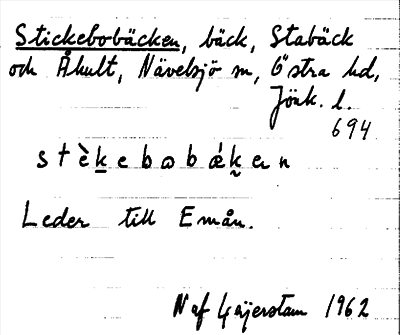 Stickebobäcken, bäck, Stabäck
och Åhult, Nävelsjö sn, Östra hd,
Jönk. l.
694
stèkebobǽken
Leder till Emån.
N af Geijerstam 1962